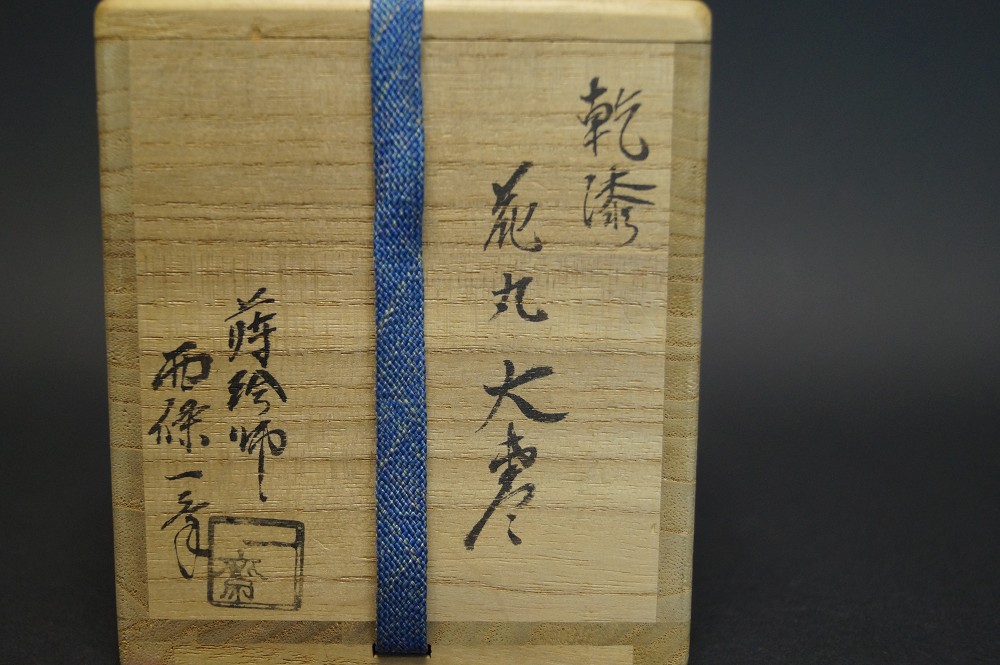 乾漆
花丸大棗
蒔絵師
西條一斎
一齋